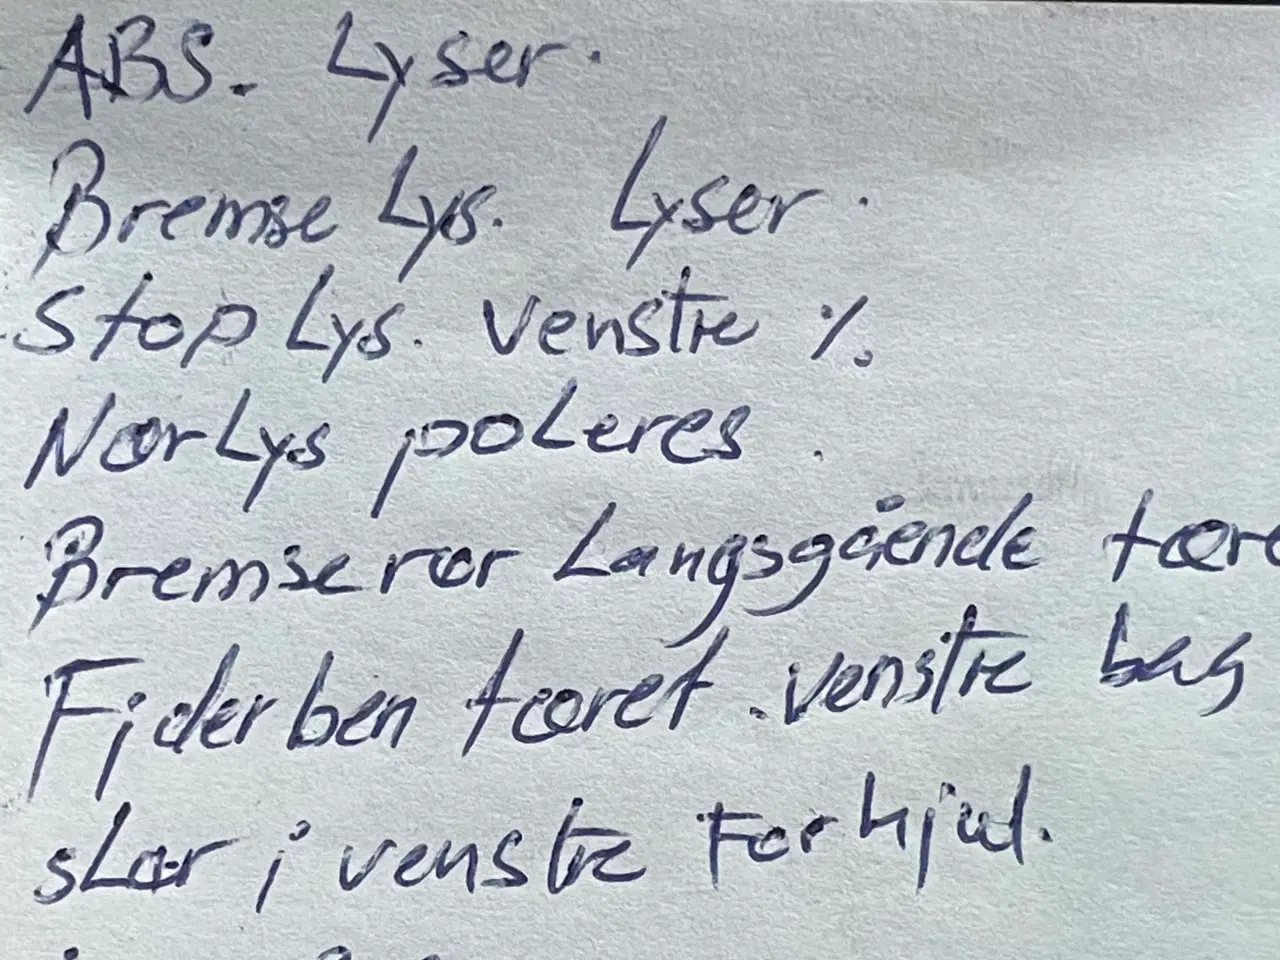 ABS. Lyser.
Bremse Lys. Lyser.
Stop Lys. venstre %.
NærLys poLeres.
Bremserør Langsgående tære
Fjderben tæret. venstre bag
sLør i venstre Forhjul.